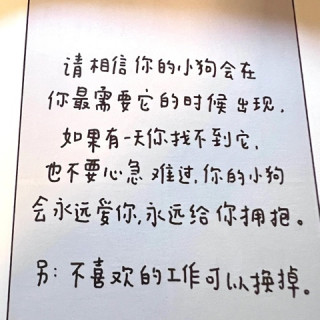 请相信你的小狗会在
你最需要它的时候出现.
如果有一天你找不到它,
也不要心急难过,你的小狗
会永远爱你,永远给你拥抱。
另:不喜欢的工作可以换掉。